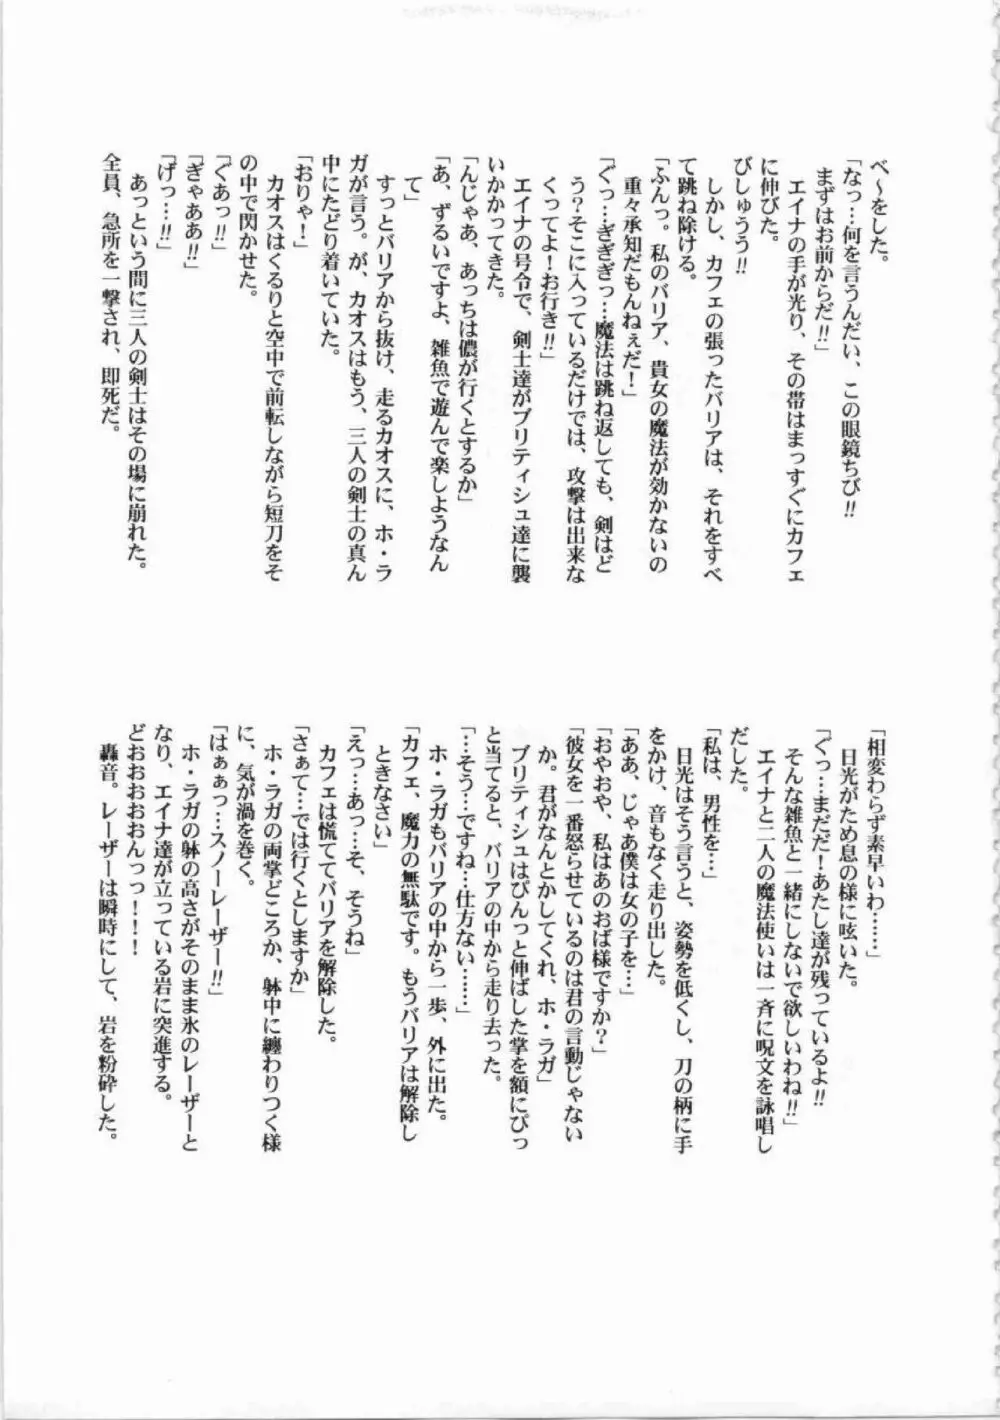 べ～をした。
「なっ…何を言うんだい、この眼鏡ちび!!
まずはお前からだ!!」
エイナの手が光り、その帯はまっすぐにカフェ
に伸びた。
びしゅうう!!
しかし、カフェの張ったバリアは、それをすべ
て跳ね除ける。
「ふんっ。私のバリア、貴女の魔法が効かないの
重々承知だもんねぇだ！」
「ぐっ…ぎぎぎっ…魔法は跳ね返しても、剣はど
う？そこに入っているだけでは、攻撃は出来な
くってよ！お行き!!」
エイナの号令で、剣士達がブリティシュ達に襲
いかかってきた。
「んじゃあ、あっちは儂が行くとするか」
「あ、ずるいですよ、雑魚で遊んで楽しようなん
て」
すっとバリアから抜け、走るカオスに、ホ・ラ
ガが言う。が、カオスはもう、三人の剣士の真ん
中にたどり着いていた。
「おりゃ！」
カオスはくるりと空中で前転しながら短刀をそ
の中で閃かせた。
「ぐあっ!!」
「ぎゃああ!!」
「げっ…!!」
あっという間に三人の剣士はその場に崩れた。
全員、急所を一撃され、即死だ。
「相変わらず素早いわ……」
日光がため息の様に呟いた。
「ぐっ…まだだ！あたし達が残っているよ!!
そんな雑魚と一緒にしないで欲しいわね!!」
エイナと二人の魔法使いは一斉に呪文を詠唱し
だした。
「私は、男性を…」
日光はそう言うと、姿勢を低くし、刀の柄に手
をかけ、音もなく走り出した。
「ああ、じゃあ僕は女の子を…」
「おやおや、私はあのおば様ですか？」
「彼女を一番怒らせているのは君の言動じゃない
か。君がなんとかしてくれ、ホ・ラガ」
ブリティシュはぴんっと伸ばした掌を額にぴっ
と当てると、バリアの中から走り去った。
「…そう…ですね…仕方ない……」
ホ・ラガもバリアの中から一歩、外に出た。
「カフェ、魔力の無駄です。もうバリアは解除し
ときなさい」
「えっ…あっ…そ、そうね」
カフェは慌ててバリアを解除した。
「さぁて…では行くとしますか」
ホ・ラガの両掌どころか、躰中に纏わりつく様
に、気が渦を巻く。
「はぁぁっ…スノーレーザー!!」
ホ・ラガの躰の高さがそのまま氷のレーザーと
なり、エイナ達が立っている岩に突進する。
どおおおおおんっっ！！！！
轟音。レーザーは瞬時にして、岩を粉砕した。